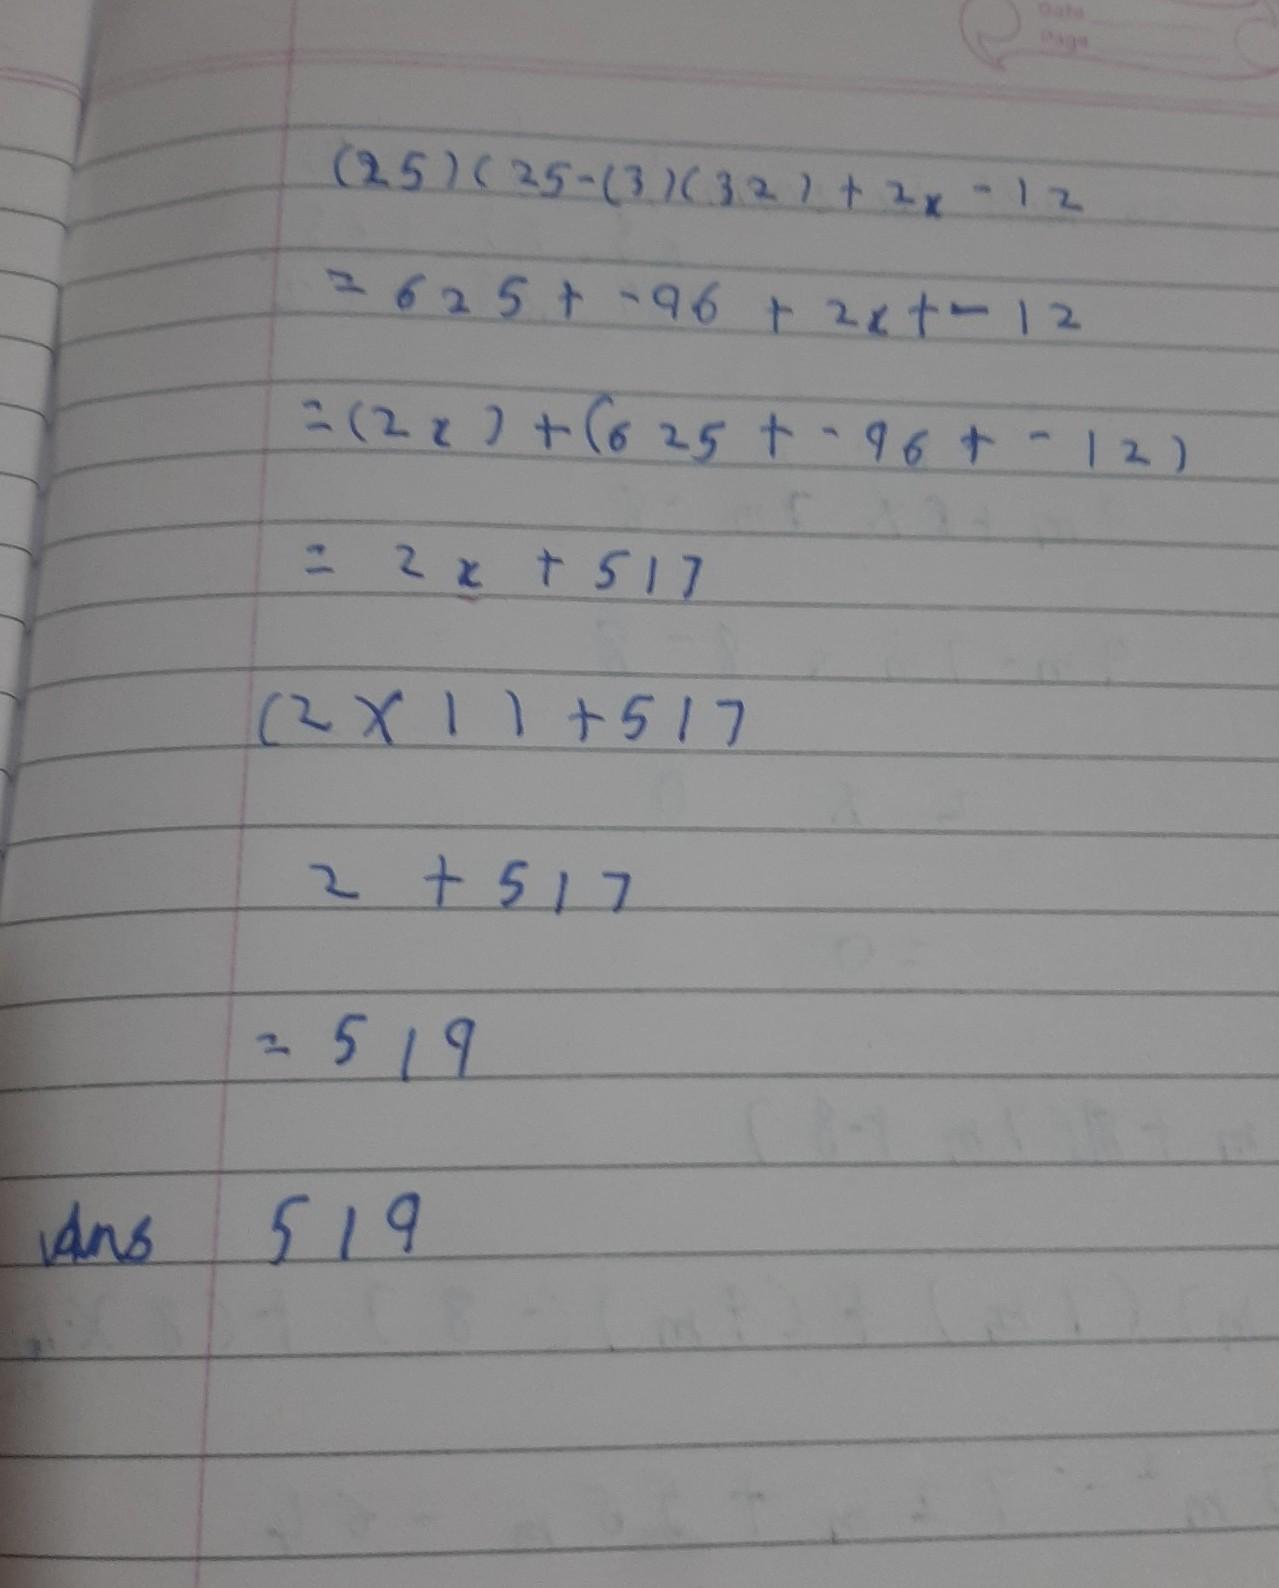 Date
Page
(25)(25-(3)(32)+2x-12
=625+-96+2x+-12
=(2x)+(625+-96+-12)
=2x+517
(2X1)+517
2+517
=519
Ans 519